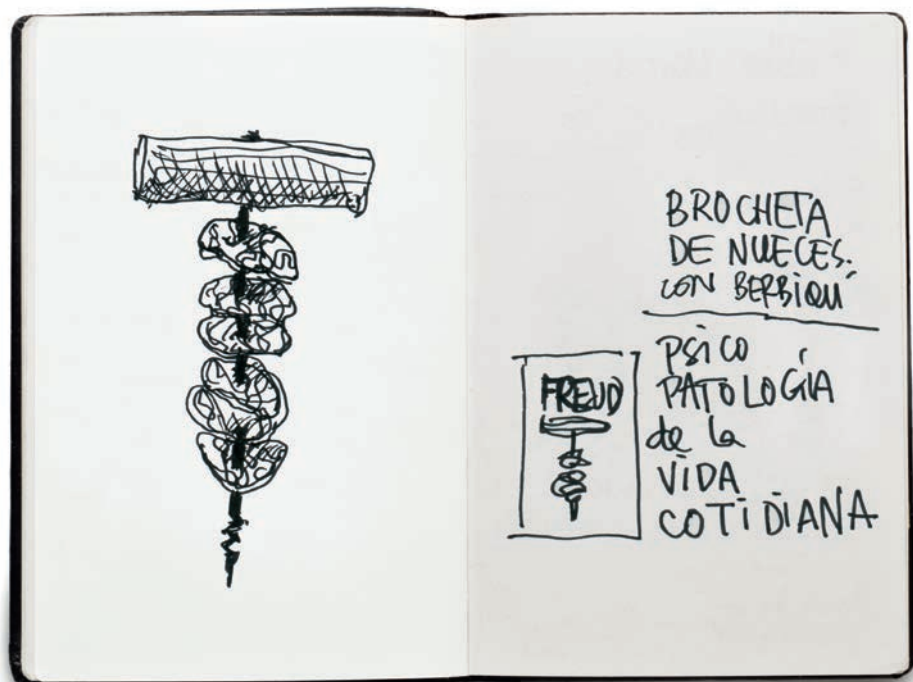 BROCHETA
DE NUECES.
CON BERBIQUÍ
FREUD
PSICO
PATOLOGÍA
de la
VIDA
COTIDIANA